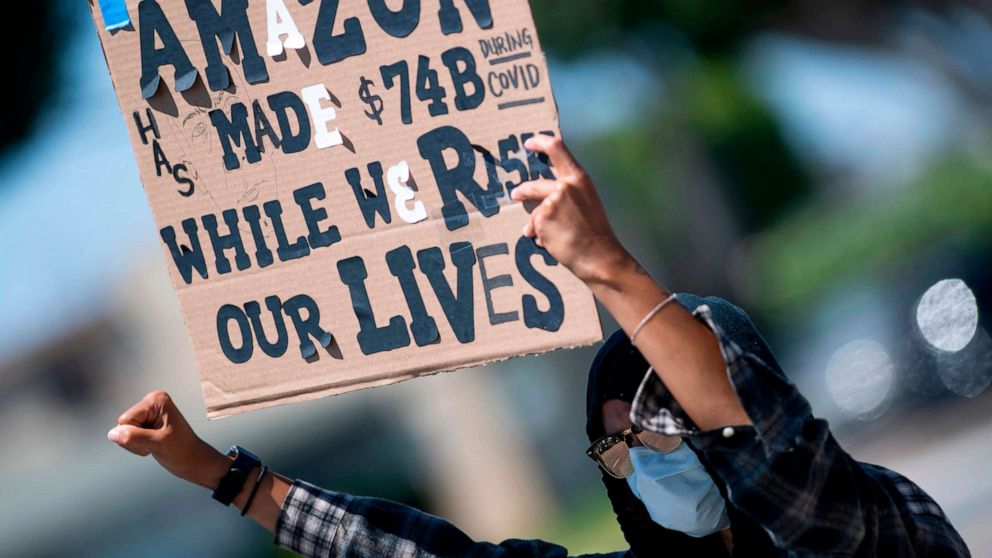 AMAZON
HAS MADE $74B DURING COVID
WHILE WE RISK
OUR LIVES